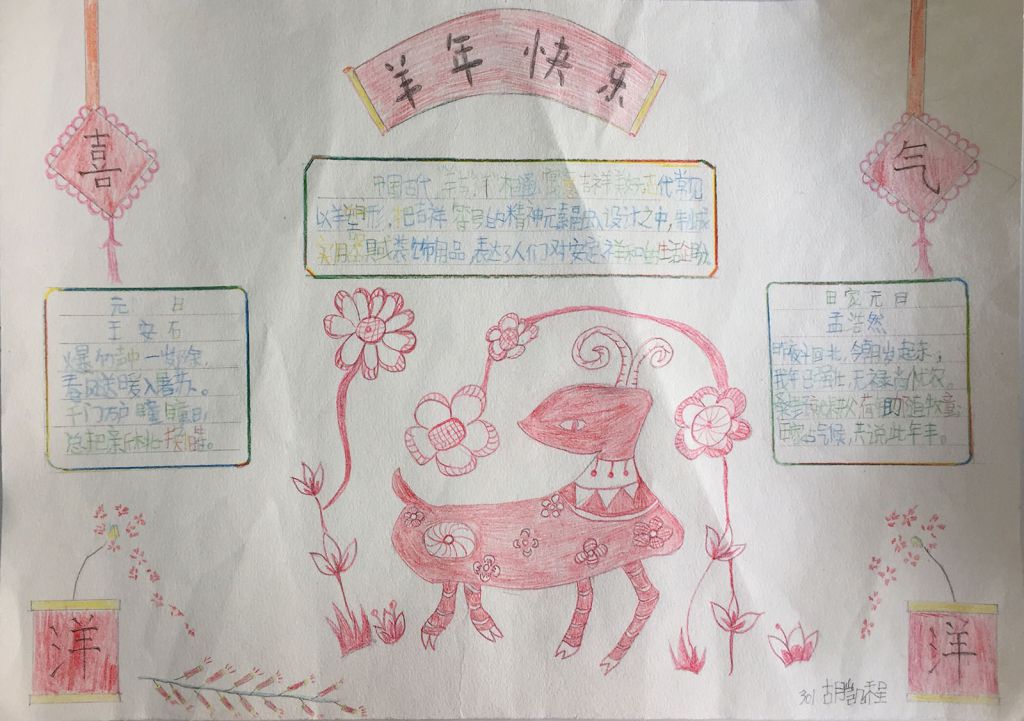 羊年快乐
喜
气
中国古代,"羊""祥"相通,寓意吉祥
以羊 形,把吉祥 的精神元素融入设计之中,制成
实用 具或装饰用品,表达了人们对安定、祥和的生活企盼。
元 日
王安石
爆竹声中一岁除,
春风送暖入屠苏。
千门万户曈曈日,
总把新桃换旧符。
田家元日
孟浩然
昨夜斗回北,今朝岁起东;
我年已强壮,无禄尚忧农。
桑野就耕父,荷锄随牧童;
田家占气候,共说此年丰。
洋
洋
301 胡凯程